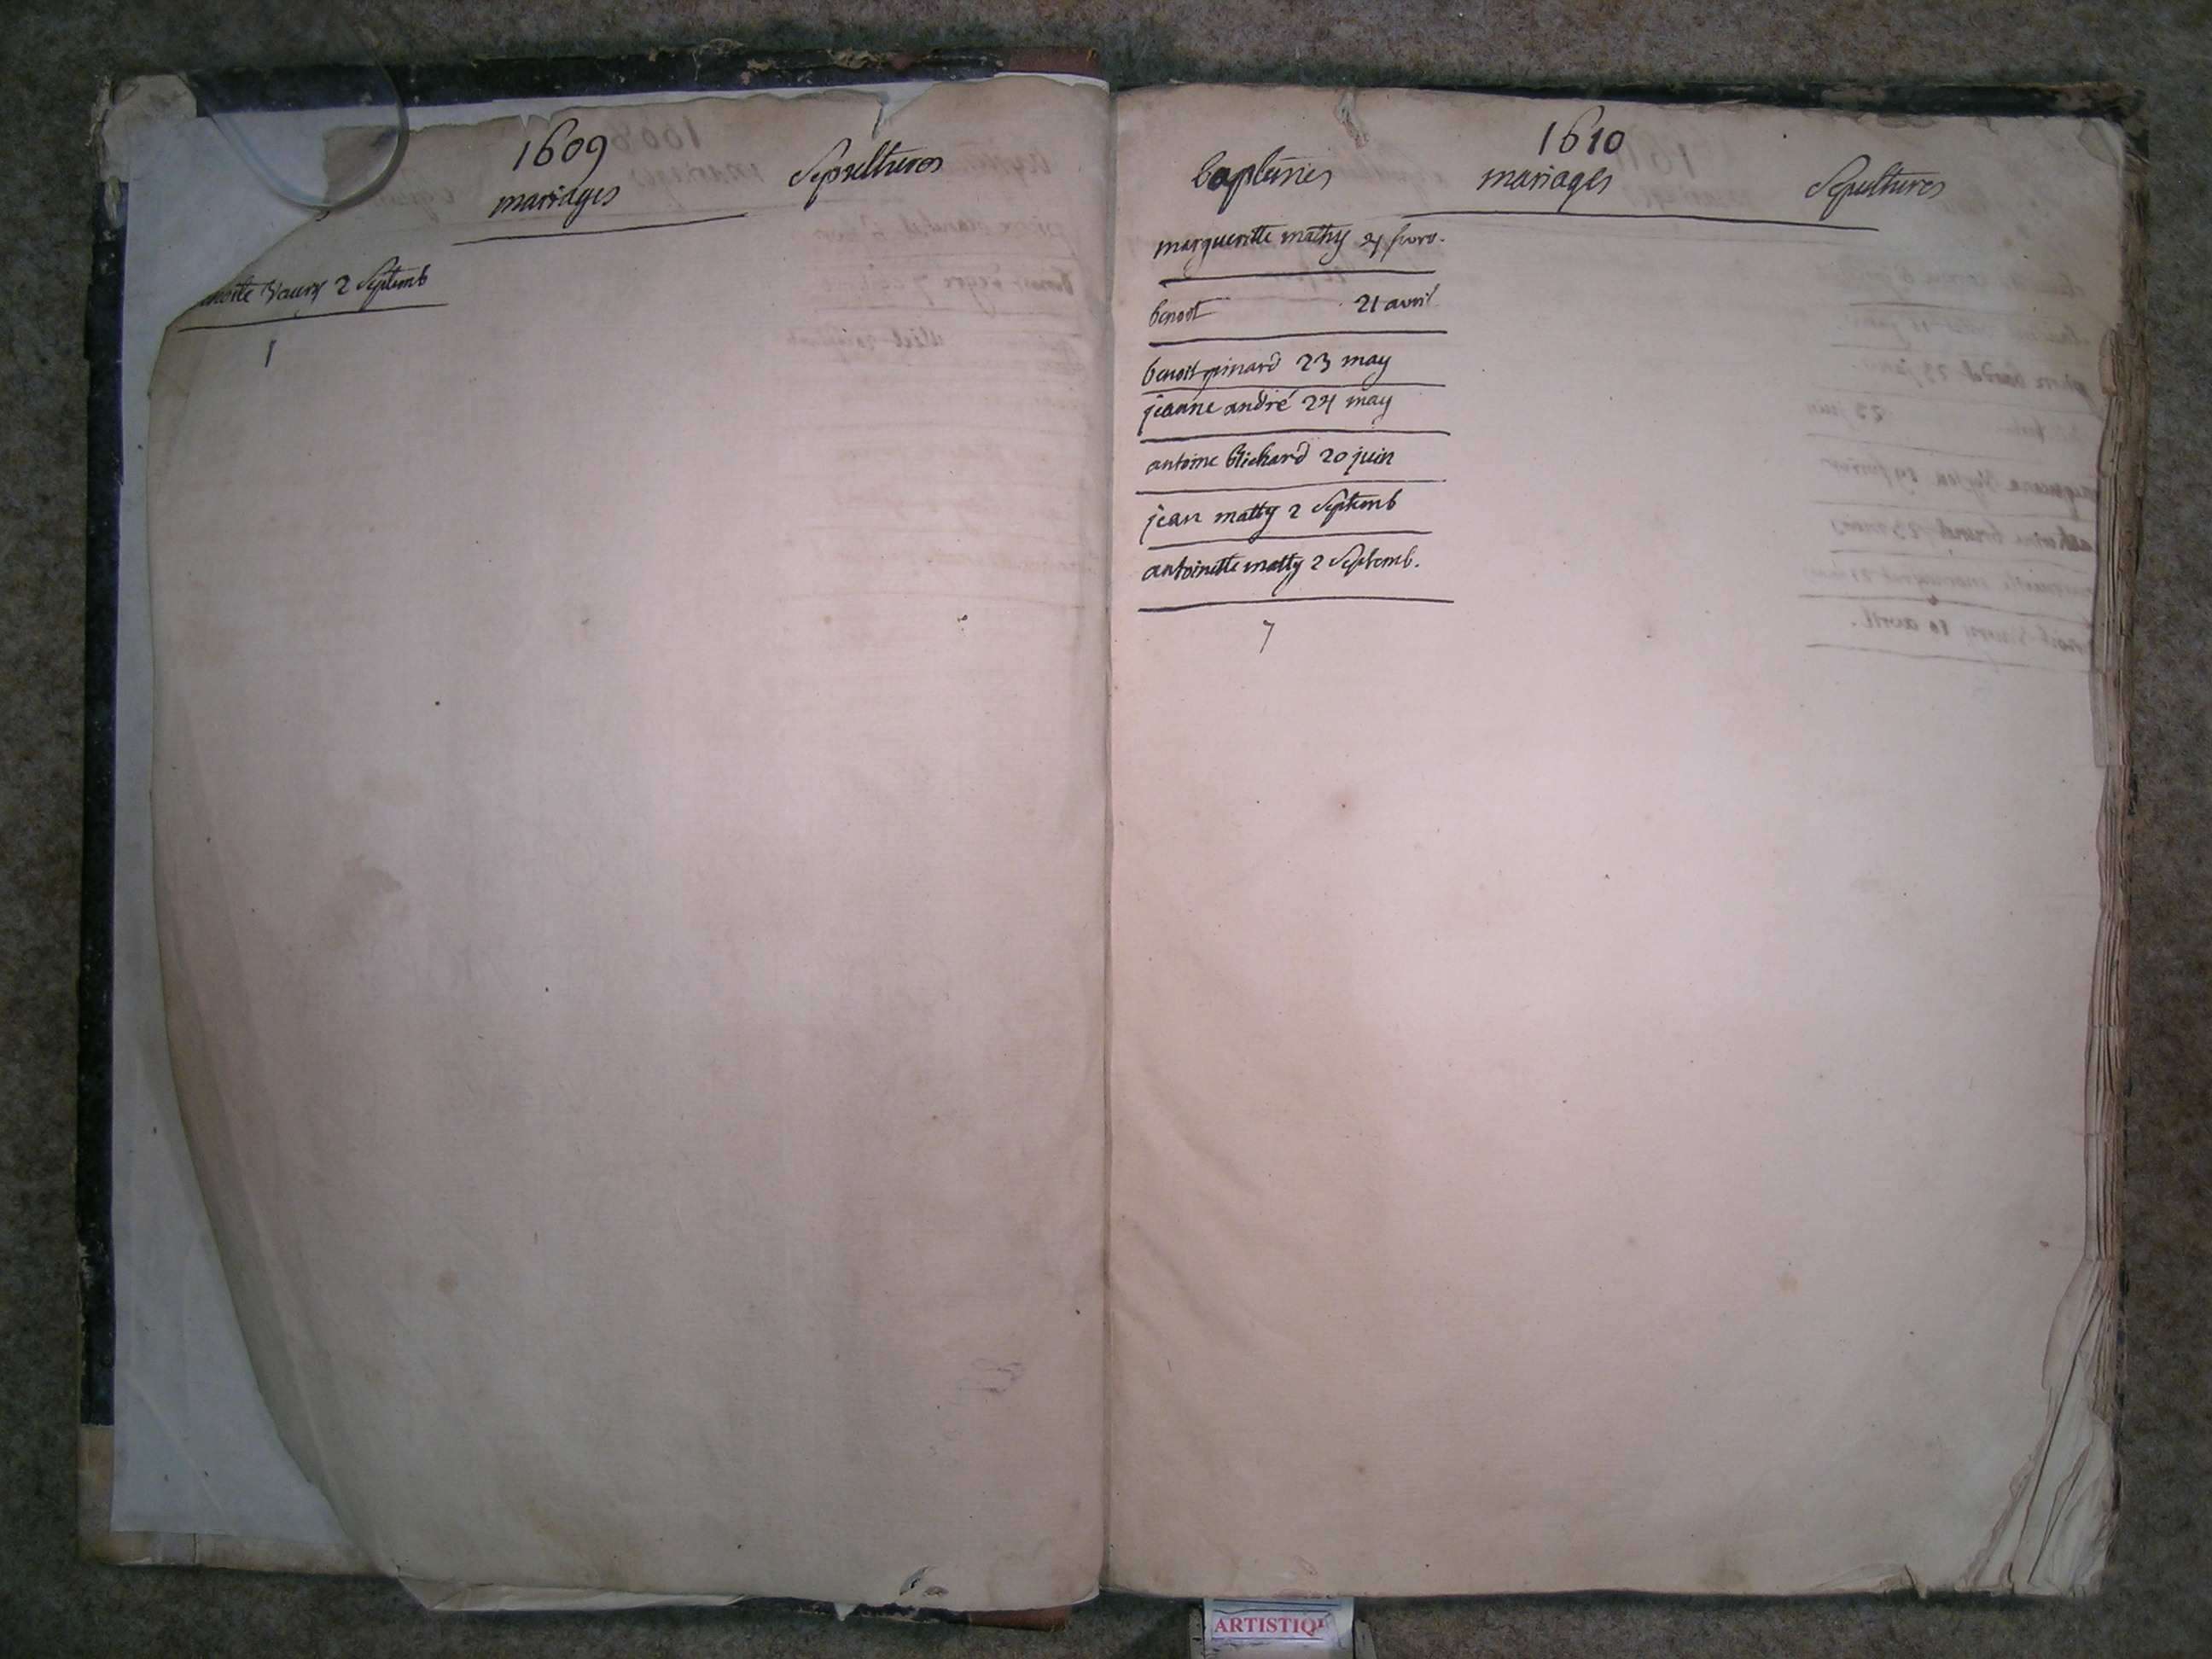 1609
mariages Sepultures
2 Septemb
1
1610
baptemes mariages Sepultures
margueritte mathy
benoit 21 avril
benoit pinard 23 may
jeanne andré 24 may
antoine 20 juin
jean matty 2 Septemb
antoinette matty 2 Septemb.
7
ARTISTIQ